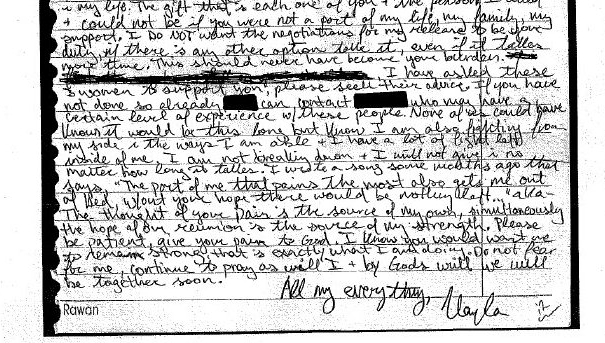 in my life. The gift that's each one of you + the person I
+ could not be if you were not a part of my life, my family, my
support. I DO NOT want the negotiations for my release to be your
duty, if there is any other option take it, even if it takes
more time. This should never have become your burden.
I have asked these
women to support you; please seek their advice. If you have
not done so already can contact who may have a
certain level of experience w/ these people. None of us could have
known it would be this long but know I am also fighting from
my side in the ways I am able + I have a lot of fight left
inside of me. I am not breaking down + I will not give in no
matter how long it takes. I wrote a song some months ago that
says, "The part of me that pains the most also gets me out
of bed, w/out your hope there would be nothing left..." aka-
The thought of your pain is the source of my own, simultaneously
the hope of our reunion is the source of my strength. Please
be patient, give your pain to God. I know you would want me
to remain strong. That is exactly what I am doing. Do not fear
for me, continue to pray as will I + by God's will we will
be together soon.
All my everything,
Kayla
Rawan